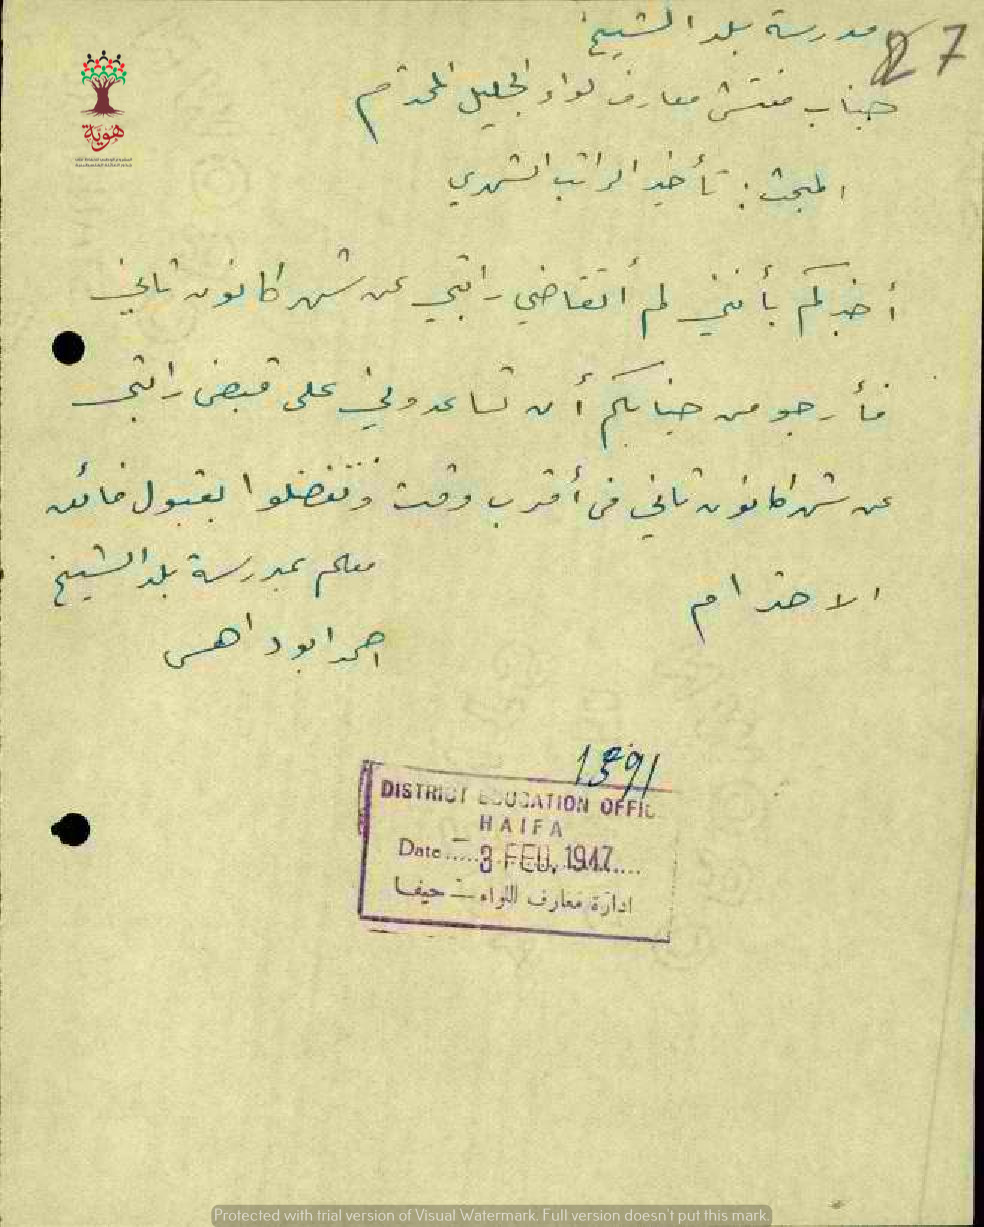 مدرسة بلد الشيخ
87
جناب مفتش معارف لواء الجليل المحترم
المبحث : تأخير الراتب الشهري
أخبركم بأنني لم أتقاضى راتبي عن شهر كانون ثاني
فأرجو من جنابكم أن تساعدوني على قبض راتبي
عن شهر كانون ثاني في أقرب وقت وتفضلوا بقبول فائق
الاحترام
معلم بمدرسة بلد الشيخ
احمد ابو داهس
1391
DISTRICT EDUCATION OFFIC
HAIFA
Date.....3 FEB. 1947....
ادارة معارف اللواء – حيفا
هوية
Protected with trial version of Visual Watermark. Full version doesn't put this mark.